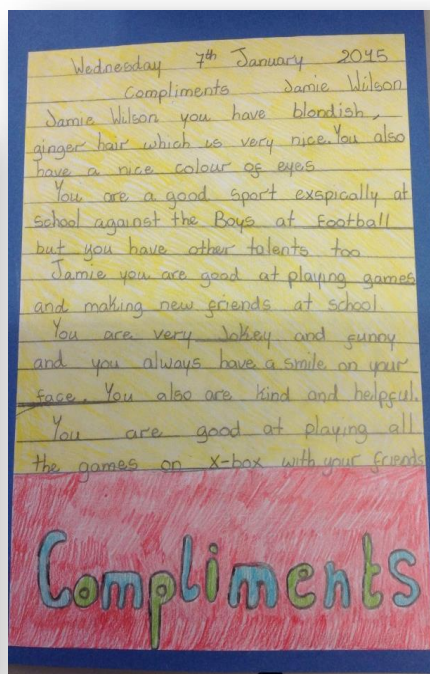 Wednesday 7th January 2015
Compliments Jamie Wilson
Jamie Wilson you have blondish,
ginger hair which is very nice. You also
have a nice colour of eyes
You are a good sport exspically at
school against the Boys at Football
but you have other talents too
Jamie you are good at playing games
and making new friends at school
You are very Jokey and funny
and you always have a smile on your
face. You also are kind and helpful.
You are good at playing all
the games on X-box with your friends
Compliments